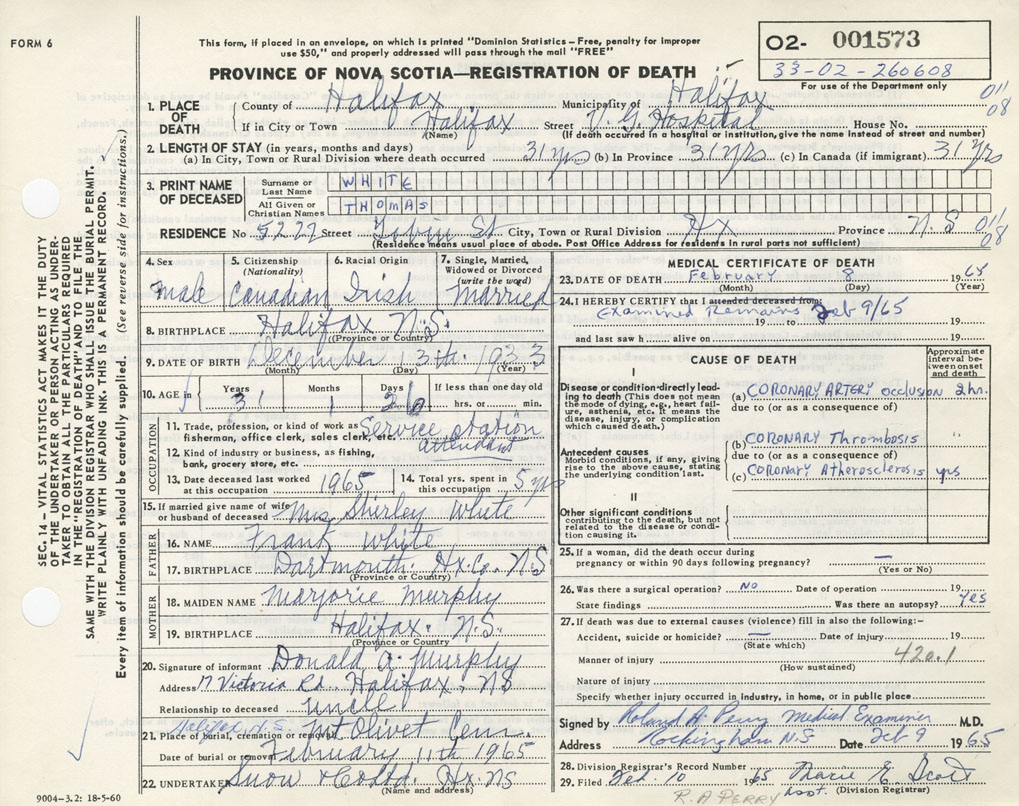 FORM 6
This form, if placed in an envelope, on which is printed "Dominion Statistics - Free, penalty for improper
use $50," and properly addressed will pass through the mail "FREE"
O2- 001573
33-02-260608
For use of the Department only
PROVINCE OF NOVA SCOTIA—REGISTRATION OF DEATH
1. PLACE OF DEATH
County of Halifax Municipality of Halifax 011/08
If in City or Town Halifax Street V. G. Hospital House No.
(Name) (If death occurred in a hospital or institution, give the name instead of street and number)
2. LENGTH OF STAY (in years, months and days)
(a) In City, Town or Rural Division where death occurred 31 yrs (b) In Province 31 yrs (c) In Canada (if immigrant) 31 yrs
3. PRINT NAME OF DECEASED
Surname or Last Name WHITE
All Given or Christian Names THOMAS
RESIDENCE No 5222 Street Tobin St City, Town or Rural Division Hx Province N.S 011/08
(Residence means usual place of abode. Post Office Address for residents in rural parts not sufficient)
4. Sex
male
5. Citizenship (Nationality)
Canadian
6. Racial Origin
Irish
7. Single, Married, Widowed or Divorced (write the word)
Married
8. BIRTHPLACE Halifax N.S.
(Province or Country)
9. DATE OF BIRTH December 13th. 1933
(Month) (Day) (Year)
10. AGE in
Years 31
Months 1
Days
If less than one day old
hrs. or min.
OCCUPATION
11. Trade, profession, or kind of work as fisherman, office clerk, sales clerk, etc. Service station attendant
12. Kind of industry or business, as fishing, bank, grocery store, etc.
13. Date deceased last worked at this occupation 1965
14. Total yrs. spent in this occupation 5 yrs
15. If married give name of wife or husband of deceased Mrs Shirley White
FATHER
16. NAME Frank White
17. BIRTHPLACE Dartmouth. Hx. Co. N.S
(Province or Country)
MOTHER
18. MAIDEN NAME Marjorie Murphy
19. BIRTHPLACE Halifax. N.S.
(Province or Country)
20. Signature of informant Donald A. Murphy
Address 17 Victoria Rd., Halifax, NS
Relationship to deceased uncle
21. Place of burial, cremation or removal Halifax N.S. Mt Olivet Cem.
Date of burial or removal February 11th 1965
22. UNDERTAKER Snow & Co Ltd. Hx. NS
(Name and address)
9004-3.2: 18-5-60
MEDICAL CERTIFICATE OF DEATH
23. DATE OF DEATH February 8 1965
(Month) (Day) (Year)
24. I HEREBY CERTIFY that I attended deceased from:
Examined Remains Feb 9/65
19 to 19
and last saw h alive on 19
CAUSE OF DEATH
Approximate interval between onset and death
I
Disease or condition directly leading to death (This does not mean the mode of dying, e.g., heart failure, asthenia, etc. It means the disease, injury, or complication which caused death.)
(a) CORONARY ARTERY occlusion 2 hr.
due to (or as a consequence of)
Antecedent causes
Morbid conditions, if any, giving rise to the above cause, stating the underlying condition last.
(b) CORONARY Thrombosis "
due to (or as a consequence of)
(c) CORONARY Atherosclerosis yrs
II
Other significant conditions
contributing to the death, but not related to the disease or condition causing it.
25. If a woman, did the death occur during pregnancy or within 90 days following pregnancy? —
(Yes or No)
26. Was there a surgical operation? NO Date of operation 19
State findings Was there an autopsy? Yes
27. If death was due to external causes (violence) fill in also the following:-
Accident, suicide or homicide? — Date of injury 19
(State which)
Manner of injury 420.1
(How sustained)
Nature of injury
Specify whether injury occurred in industry, in home, or in public place
Signed by Roland A. Perry Medical Examiner M.D.
Address Rockingham N.S Date Feb 9 1965
28. Division Registrar's Record Number
29. Filed Feb. 10 1965 Marie E. Scott
(Division Registrar)
R. A PERRY Asst.
SEC. 14 – VITAL STATISTICS ACT MAKES IT THE DUTY
OF THE UNDERTAKER OR PERSON ACTING AS UNDER-
TAKER TO OBTAIN ALL THE PARTICULARS REQUIRED
IN THE "REGISTRATION OF DEATH" AND TO FILE THE
SAME WITH THE DIVISION REGISTRAR WHO SHALL ISSUE THE BURIAL PERMIT.
WRITE PLAINLY WITH UNFADING INK. THIS IS A PERMANENT RECORD.
Every item of information should be carefully supplied. (See reverse side for instructions.)